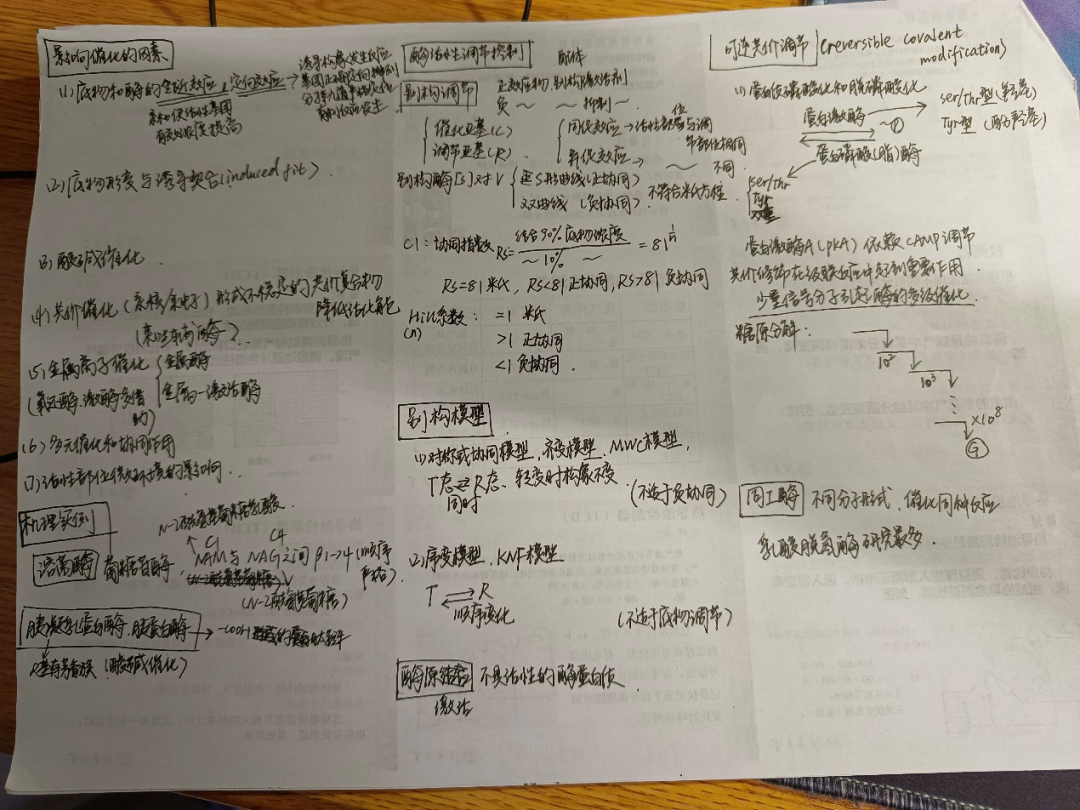 影响催化的因素
(1) 底物和酶的邻近效应,定向效应
亲和使活性基团
底物浓度提高
(2) 底物形变与诱导契合(induced fit)
(3) 酸碱催化.
(4) 共价催化(亲核/亲电子) 形成不稳定的共价复合物
降低活化能
(5) 金属离子催化 金属酶
金属-激活酶
(6) 多元催化和协同作用
(7) 活性部位微环境的影响.
机理实例
溶菌酶 葡糖苷酶 NAM与NAG之间 β1→4 (顺序严格)
C1 C4
(N-2酰氨基葡糖)
胰凝乳蛋白酶.胰蛋白酶 → -COOH
(酸碱催化)
酶活性调节控制 配体
别构调节 正效应物 别构激活剂
负 ~ ~ 抑制~
催化亚基(C)
调节亚基(R)
同促效应→活性部位与调节部位相同
异促效应→ ~ 不同.
别构酶[S]对V S形曲线(正协同)
双曲线 (负协同) 不符合米氏方程.
CI:协同指数 Rs= 结合90%底物浓度 / ~10% ~ = 81^(1/n)
Rs=81 米氏, Rs<81 正协同, Rs>81 负协同
Hill系数: =1 米氏
(n) >1 正协同
<1 负协同.
别构模型
(1) 对称或协同模型,齐变模型, MWC模型,
T态⇌R态、转变时构象不变
同时 (不适于负协同)
(2) 序变模型, KNF模型
T ⇌ R
顺序变化 (不适于底物调节)
酶原 不具活性的酶蛋白质
激活
可逆共价调节 (reversible covalent
modification)
(1) 蛋白质磷酸化和脱磷酸化
蛋白激酶 ~Ⓟ ser/Thr型
Tyr型
蛋白磷酸(脂)酶
ser/Thr
Tyr
双重
蛋白激酶A(PKA) 依赖CAMP调节
共价修饰在级联反应中起到重要作用.
少量信号分子引起酶的多级催化.
糖原分解:
10²
10³
×10⁸
Ⓖ
同工酶 不同分子形式, 催化同种反应
乳酸脱氢酶研究最多.